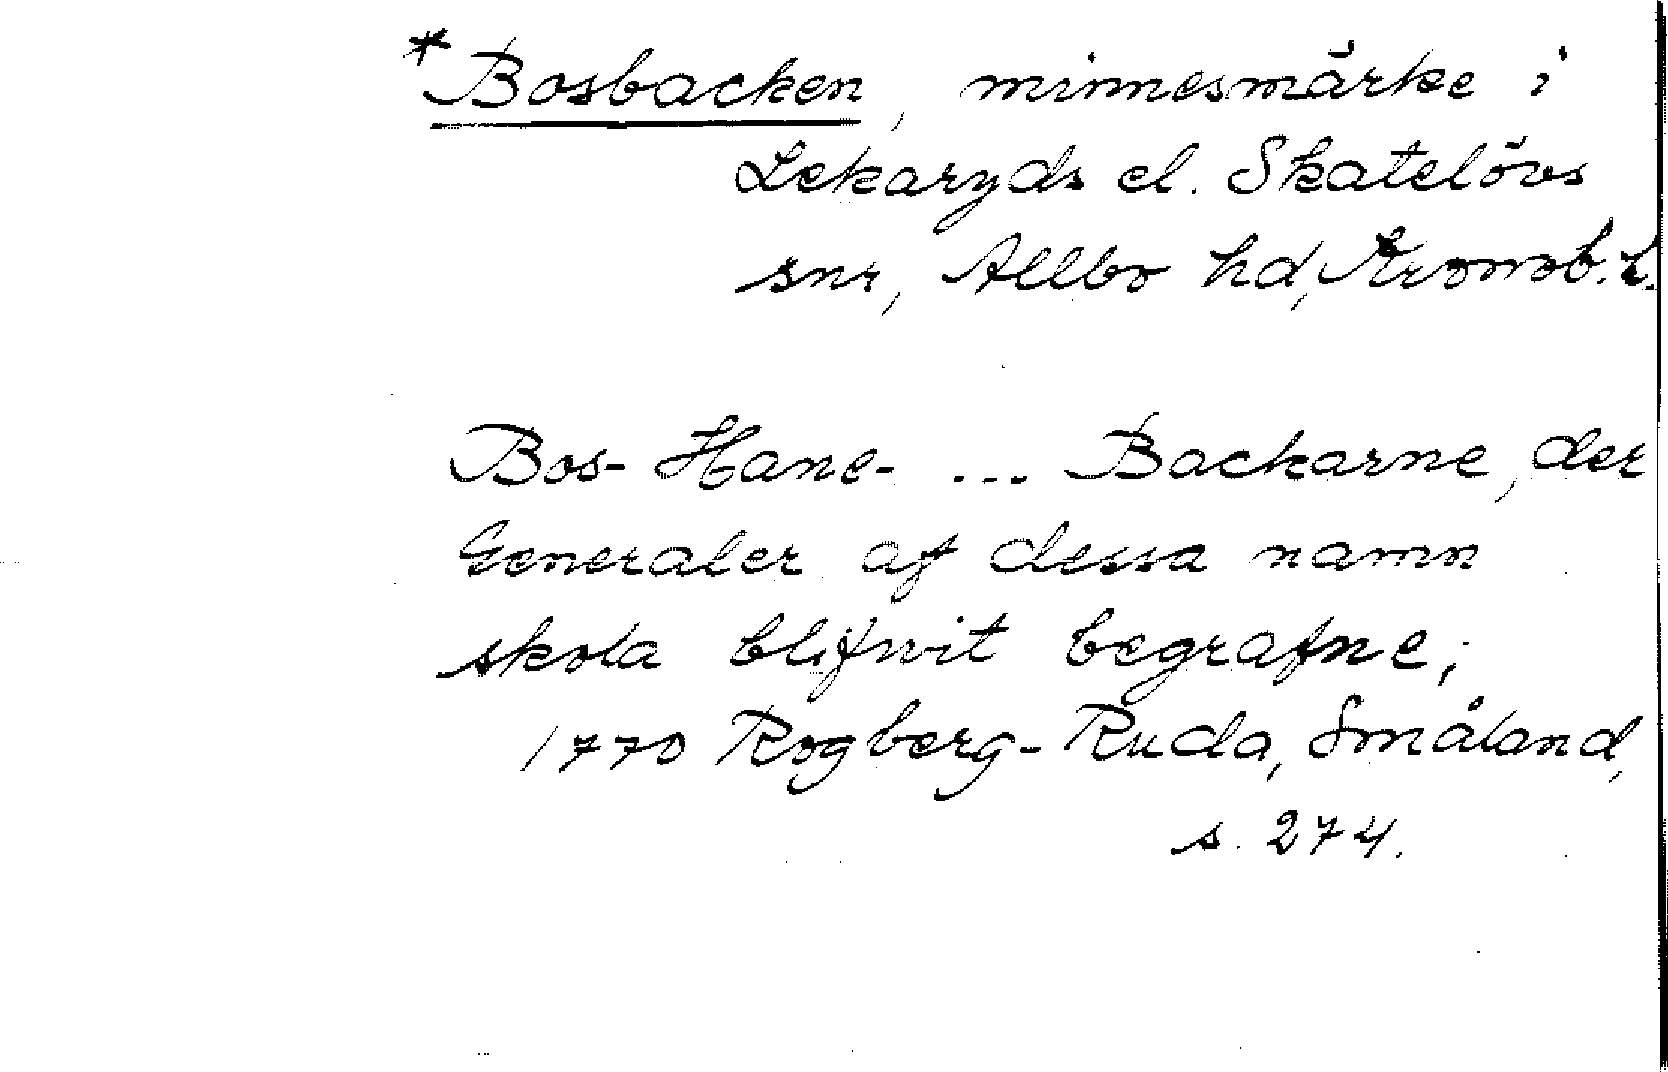 *Bosbacken, minnesmärke i
Lekaryds el. Skatelövs
snr, Allbo hd, Kronob. l.
Bos- Hane- ... Backarne, der
Generaler af dessa namn
skola blifwit begrafne;
1770 Rogberg-Ruda, Småland,
s. 274.